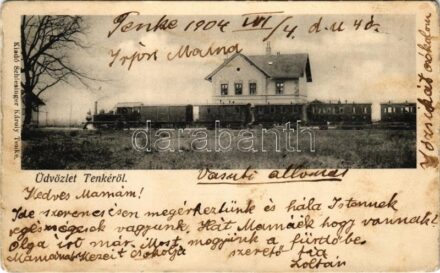 Tenke 1904 VII/4 d.u 4 ó.
Írjon Mama
Vonulás
Kiadó Schlesinger Károly Tenke.
darabanth
Üdvözlet Tenkéről.
Vasuti állomás
Kedves Mamám!
Ide szerencsésen megérkeztünk és hála Istennek
egészségesek vagyunk. Hát Mamáék hogy vannak?
Olga írt már. Most megyünk a fürdőbe.
Mamának Kezeit csókolja szerető fia
Zoltán